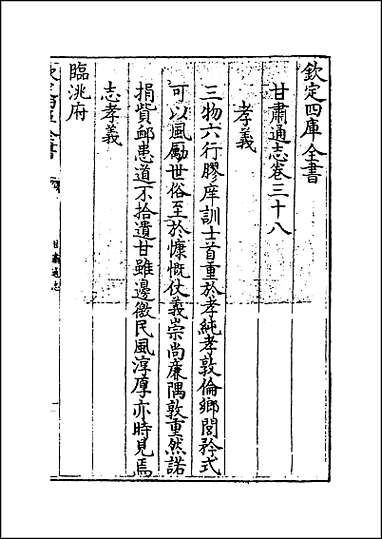 欽定四庫全書
甘肅通志卷三十八
孝義
三物六行膠庠訓士首重於孝純孝敦倫鄉閭矜式
可以風勵世俗至於慷慨仗義崇尚廉隅敦重然諾
捐貲䘏患道不拾遺甘雖邊徼民風淳厚亦時見焉
志孝義
臨洮府
甘肅通志
一